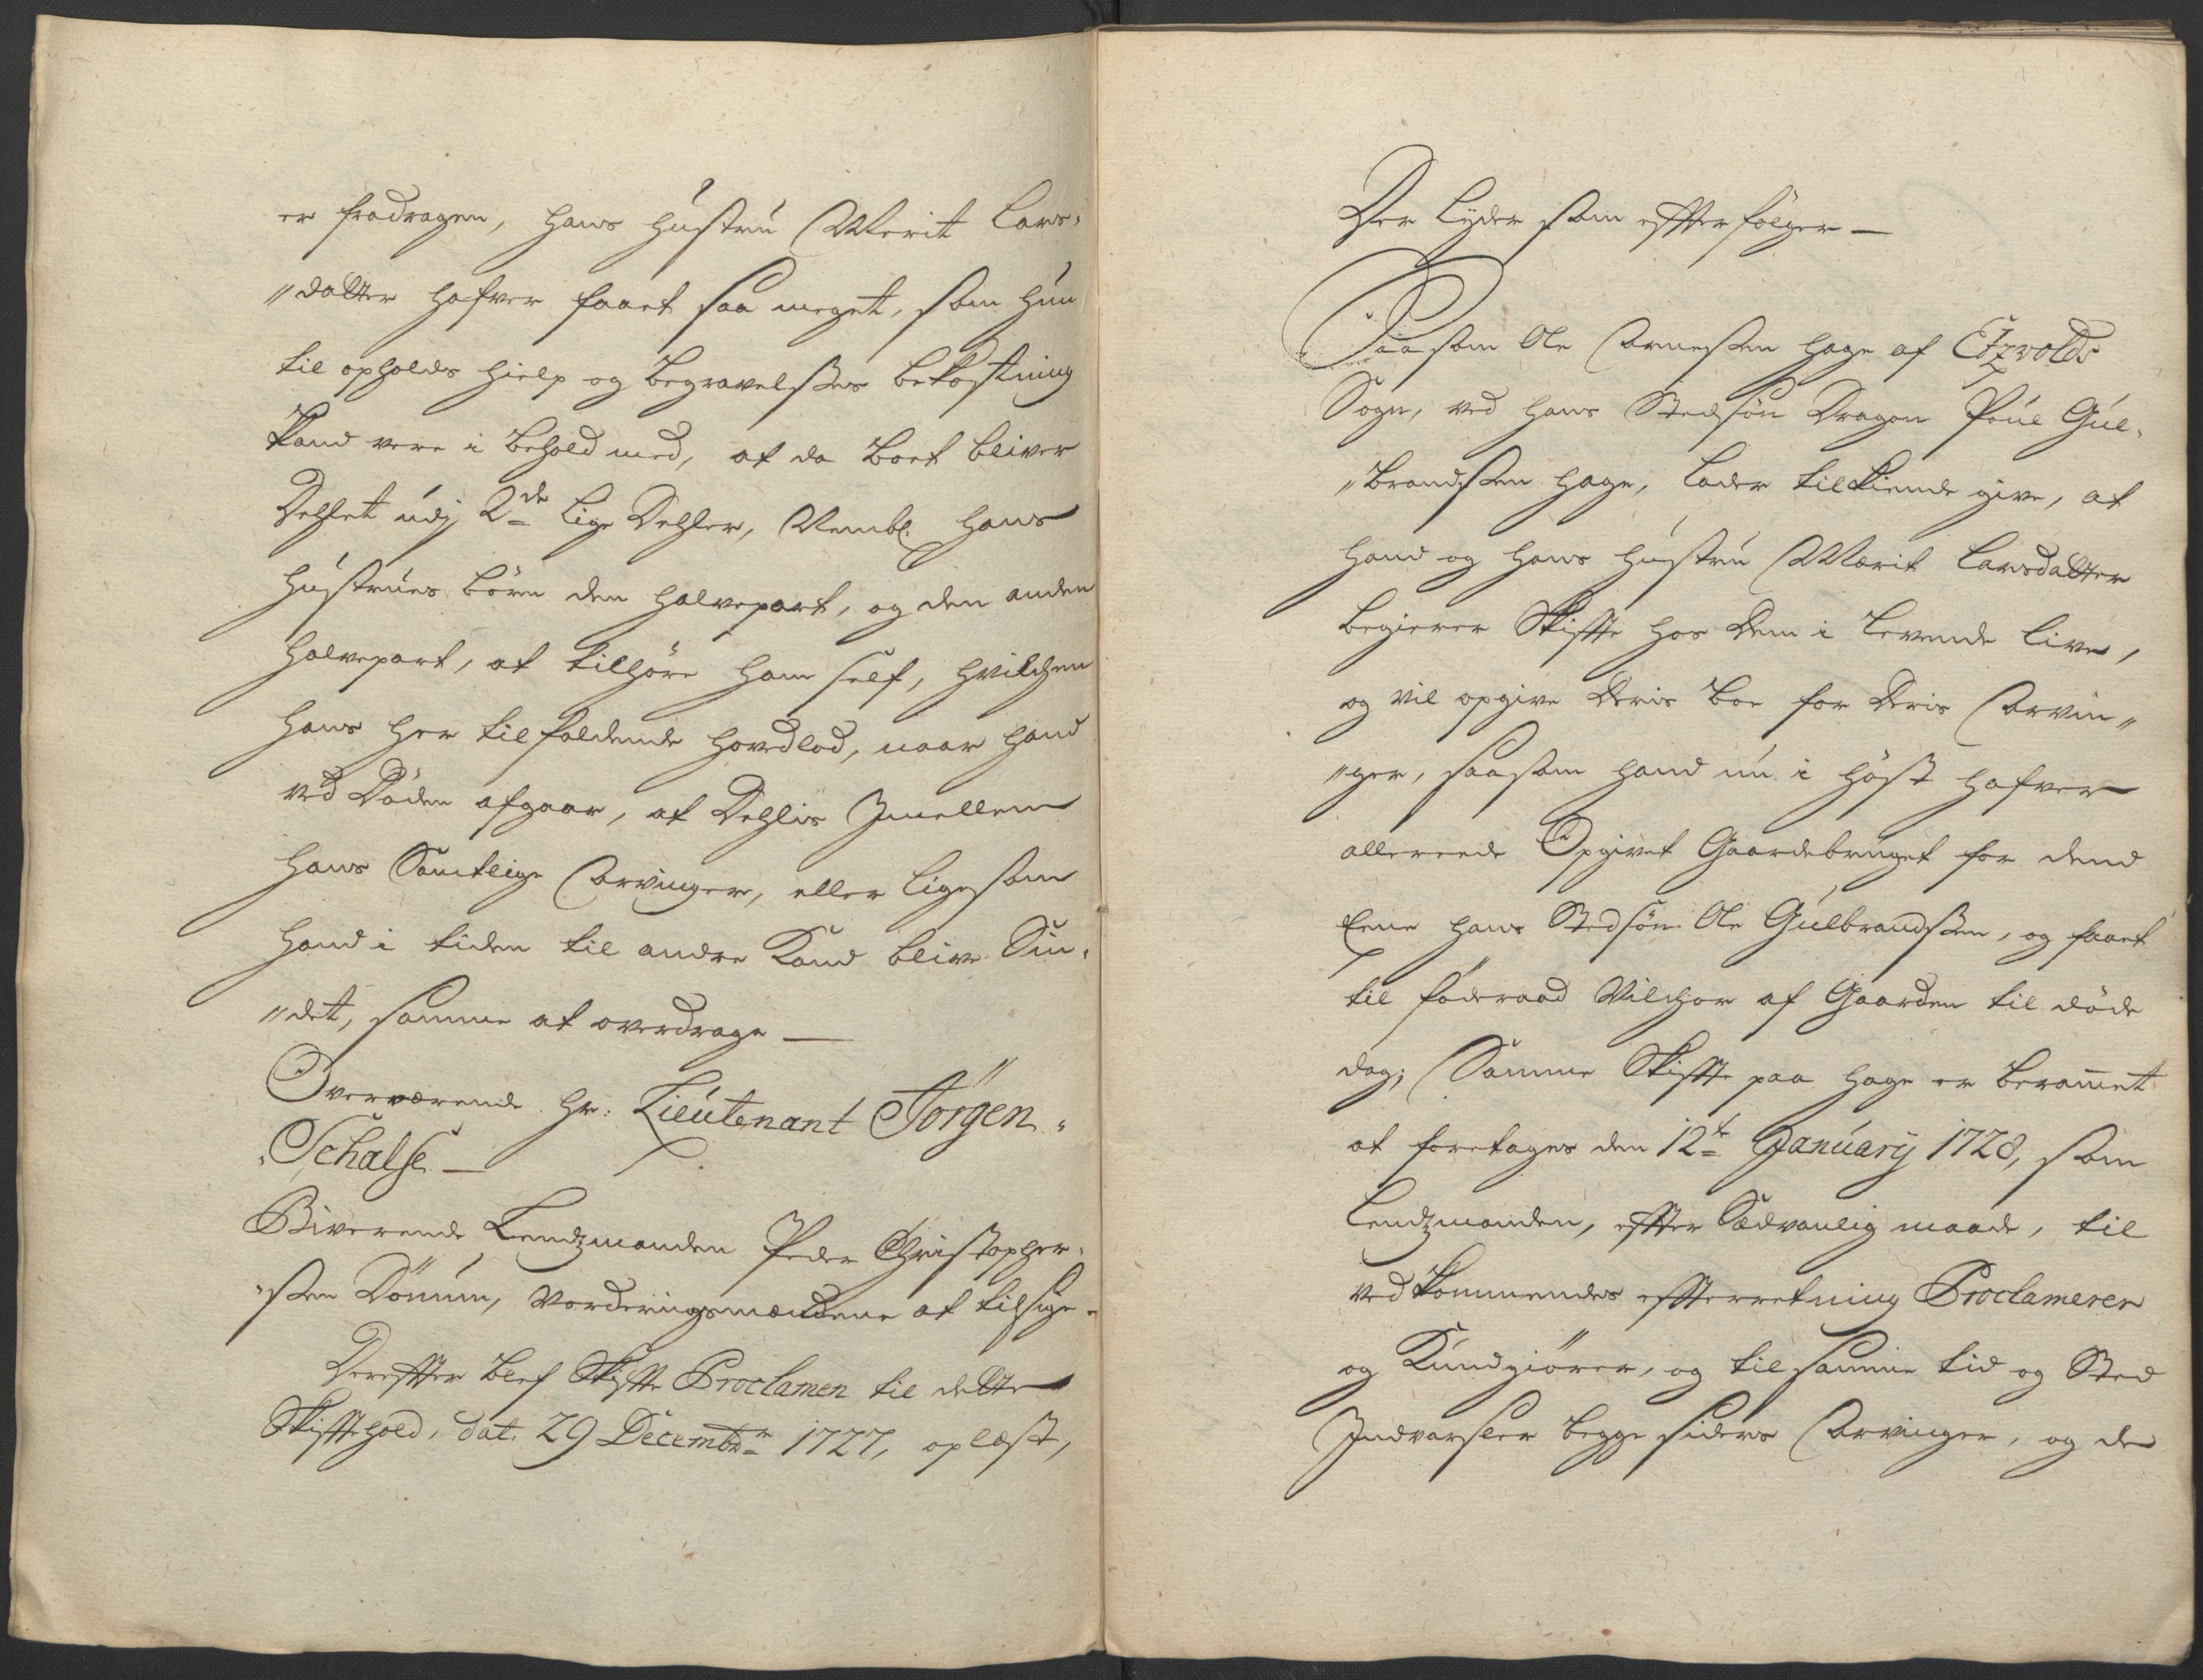 er fradragen, hans hustru Marit Lars-
"datter hafver faaet saa meget, som hun
til opholds hielp og begravelses bekostning
kand vere i behold med, at da boet bliver
Dehlet udj 2de lige Dehler, Nembl. hans
hustrues børn den halvepart, og den anden
halvepart, at tilhøre ham self, hvilchen
hans her tilfaldende hovedlod, naar hand
ved Døden afgaar, at Dehlis Jmellem
hans Samtlige Arvinger, eller ligesom
hand i tiden til andre Kand blive Sin-
"det, samme at overdrage —
Overværende hr: Lieutenant Jørgen
Schalse —
Biverende Lendzmanden Peder Christopher-
"sen Dønnum, Vorderingsmændene at tilsige.
Derefter blef Skifte Proclamen til dette
Skiftehold, dat. 29 Decembr 1727, oplæst,
Der lyder som efterfølger —
Saasom Ole Arnesen Hage af Etzvolds
Sogn, ved hans Stedsøn Dragon Poul Gul-
"brandsen Hage, lader tilkiende give, at
hand og hans hustru Marit Larsdatter
begierer Skifte hos dem i levende live,
og vil opgive deris boe for deris Arvin-
"ger, saasom hand nu i høst hafver
allereede Opgivet Gaardebruget for dend
Eene hans Stedsøn Ole Gulbrandsen, og faaet
til føderaad Vilchor af Gaarden til døde
dag; Samme Skifte paa Hage er beramet
at foretages den 12te January 1728, som
Lendzmanden, efter Sædvanlig maade, til
vedkommendes efterretning Proclamerer
og Kundgiører, og til samme tid og Sted
Indvarsler begge siders Arvinger, og de